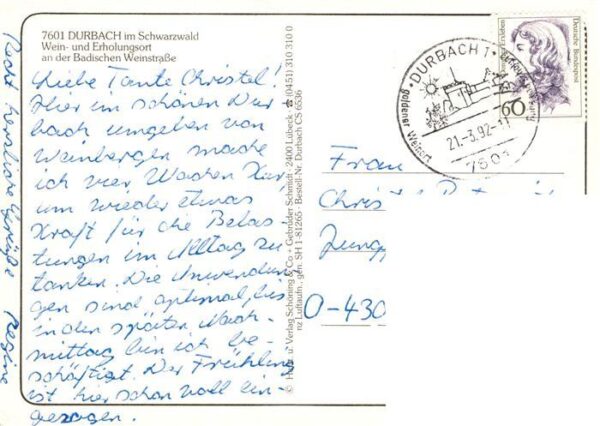 7601 DURBACH im Schwarzwald
Wein- und Erholungsort
an der Badischen Weinstraße
Liebe Tante Christel!
Hier im schönen Dur
bach umgeben von
Weinbergen mache
ich vier Wochen Kur
um wieder etwas
Kraft für die Belas-
tungen im Alltag zu
tanken. Die Anwendun
gen sind optimal, bis
in den späten Nach-
mittag bin ich be-
schäftigt. Der Frühling
ist hier schon voll ein-
gezogen.
Recht herzliche Grüße Regine
Verlag Schöning & Co + Gebrüder Schmidt · 2400 Lübeck · ☎ (0451) 310 310 0
nz Luftaufn., gen. SH 1-81265 · Bestell-Nr. Durbach CS 6536
DURBACH 1
goldener Weinort
21.-3.92-11
7601
60
Deutsche Bundespost
Frau
Jungg
O-430